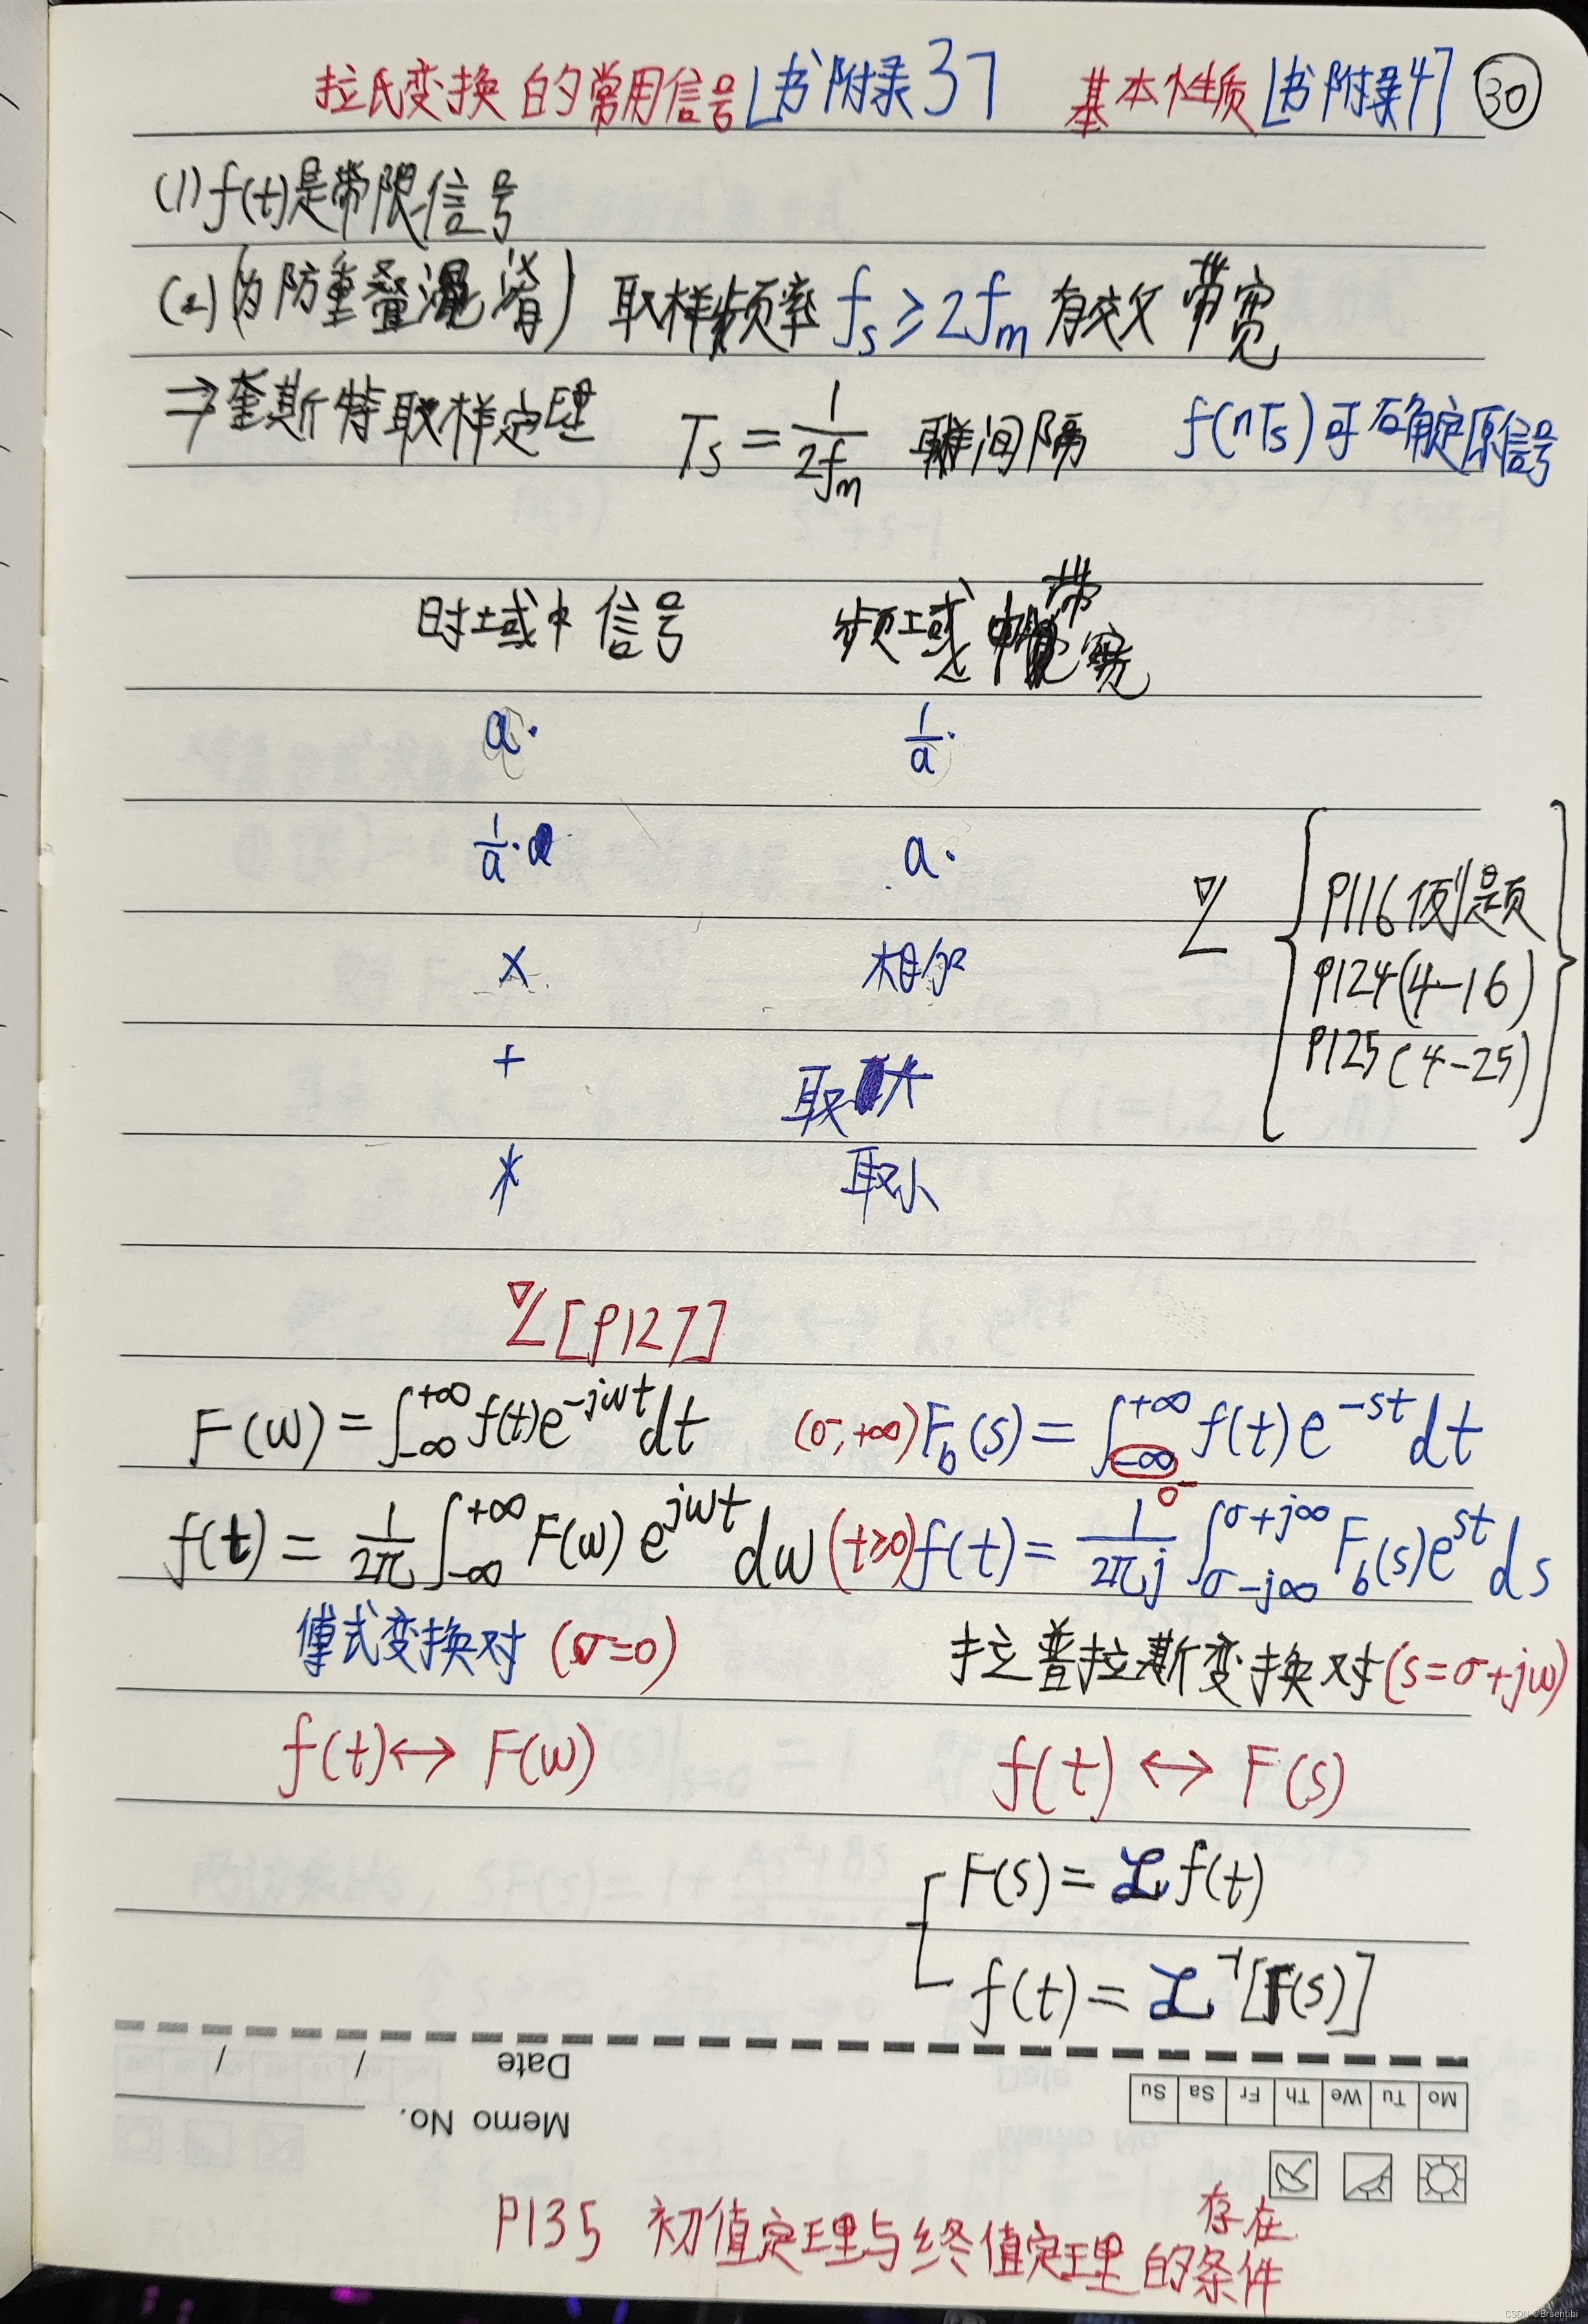 拉氏变换的常用信号[书附录3] 基本性质[书附录4] 30
(1) f(t)是带限信号
(2) (为防重叠混淆) 取样频率 fs ≥ 2fm 有效带宽
⇒ 奎斯特取样定理 Ts = 1/(2fm) 取样间隔 f(nTs)可确定原信号
时域中信号 频域中带宽
a· 1/a·
1/a· a·
P116例题
× 相加
P124(4-16)
P125(4-25)
+ 取大
* 取小
[P127]
F(ω) = ∫_{-∞}^{+∞} f(t)e^{-jωt}dt (σ, +∞) F_b(s) = ∫_{-∞}^{+∞} f(t)e^{-st}dt
0-
f(t) = 1/2π ∫_{-∞}^{+∞} F(ω)e^{jωt}dω (t≥0) f(t) = 1/2πj ∫_{σ-j∞}^{σ+j∞} F_b(s)e^{st}ds
傅式变换对 (σ=0) 拉普拉斯变换对(s=σ+jω)
f(t) ↔ F(ω) f(t) ↔ F(s)
F(s) = ℒ f(t)
f(t) = ℒ^{-1}[F(s)]
Date / /
Memo No.
Mo Tu We Th Fr Sa Su
P135 初值定理与终值定理的存在条件
CSDN @Brsentibi